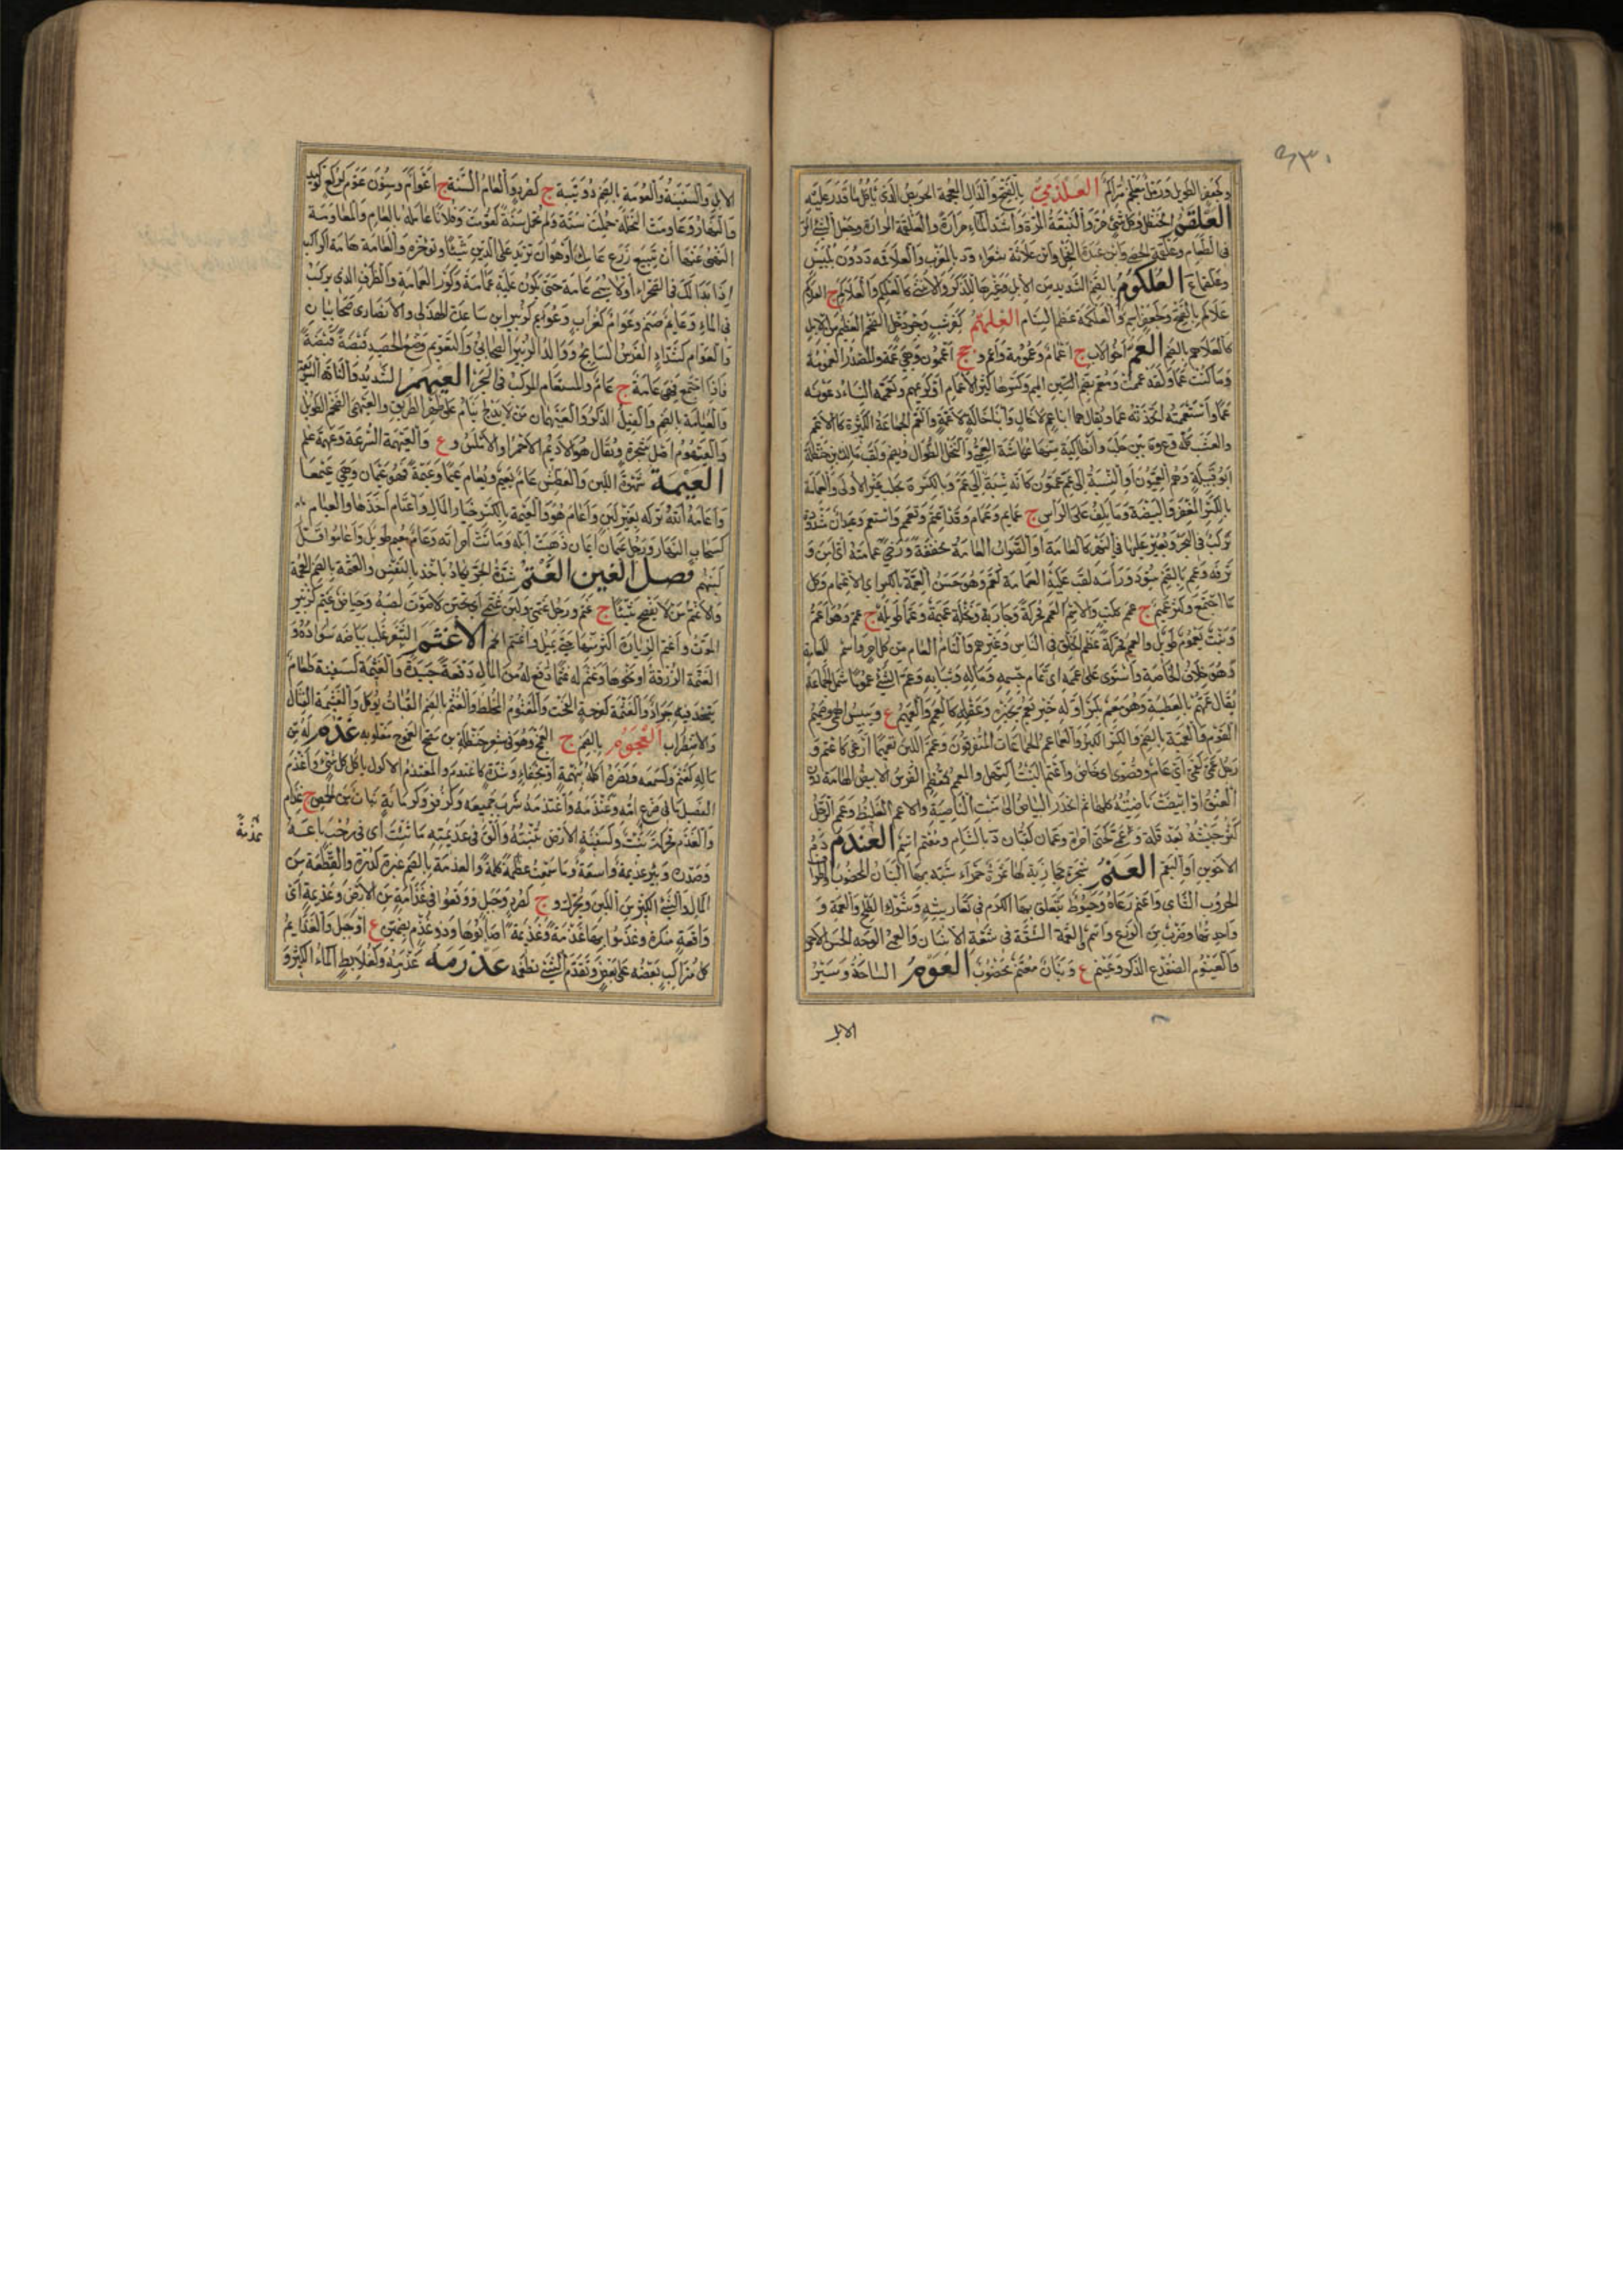 وكجعفر الطويل ورمل معلنكم متراكم العلذمي بالفتح والذال المعجمة الحريص الذي يأكل ما قدر عليه
العلقم الحنظل وكل شيء مر والنبقة المرة وأشد الماء مرارة والعلقمة المرارة وجعل الشيء المر
في الطعام وعلقمة الخصي وابن عبدة الفحل وابن علاثة شعراء و د بالمغرب والعلاقمة د دون بلبيس
وعلقماء ع العلكوم بالضم الشديد من الإبل وغيرها للذكر والأنثى كالعلكم والعلاكم ج العلاكم
علاكم بالفتح وكجعفر اسم والعلكمة عظم السنام العلهم كقرشب وجردحل الضخم العظيم من الإبل
كالعلاهم بالضم العم أخو الأب ج أعمام وعمومة وأعم و جج أعممون وهي عمة والمصدر العمومة
وما كنت عما ولقد عممت ومعم بضم الميم وكسرها كثير الأعمام أو كريمهم وتعممه النساء دعونه
عما واستعممته اتخذته عما ويقال هما ابنا عم لا خال وابنا خالة لا عمة والعم الجماعة الكثيرة كالأعم
والعشب كله و ة بين حلب وأنطاكية منها عكاشة العمي والنخل الطوال ويضم ولقب مالك بن حنظلة
أبو قبيلة وهم العميون أو النسبة إلى عم عموي كأنه نسبة إلى عمى وبالكسر ة بحلب غير الأولى والعمامة
بالكسر المغفر والبيضة وما يلف على الرأس ج عمائم وعمام وقد اعتم وتعمم واستعم وعيدان مشدودة
تركب في البحر ويعبر عليها في النهر كالعامة أو الصواب العامة مخففة وأرخى عمامته أي أمن و
ترفه وعمم بالضم سود ورأسه لف عليه العمامة كعم وهو حسن العمة بالكسر أي الاعتمام وكل
ما اجتمع وكثر عميم ج عمم ككتب والاسم العمم محركة وجارية ونخلة عميمة وعماء طويلة ج عم وهو أعم
ونبت يعموم طويل والعمم محركة عظم الخلق في الناس وغيرهم والتام العام من كل أمر واسم للعامة
وهو خلاف الخاصة واستوى على عممه أي تمام جسمه وماله وشبابه وعم الشيء عموما شمل الجماعة
يقال عمهم بالعطية وهو معم بكسر أوله خير يعم بخيره وعقله كالعمم والعميم ع ويبيس البهمى وصميم
القوم والعمية بالضم والكسر الكبر والعماعم الجماعات المتفرقون وعمم اللبن تعميما أرغى كاعتم و
رجل عمي كقمي أي عام وقصري أي خاص واعتم النبت اكتهل والمعمم كمعظم الفرس الأبيض الهامة دون
العنق أو ابيضت ناصيته كلها ثم انحدر البياض إلى منبت الناصية والأعم الغليظ وعم الرجل
كثر جيشه بعد قلة وعمى كحتى امرأة وعمان كقبان د بالشام ومعتم اسم العندم دم
الأخوين أو البقم العنم شجرة حجازية لها ثمرة حمراء شبه بها البنان المخضوب وأطراف
الخروب الشامي وأعنم رعاه وخيوط يتعلق بها الكرم في تعاريشه وشوك الطلح والعنمة
واحدتها وضرب من الوزغ واسم والعنمة الشقة في شفة الإنسان والعنمي الوجه الحسن الأحمر
والعينوم الضفدع الذكر وعينم ع وبنان معنم مخضوب العوم السباحة وسير
الابل
الإبل والسفينة والعومة بالضم دويبة ج كصرد والعام السنة ج أعوام وسنون عوم كركع توكيد
والنهار وعاومت النخلة حملت سنة ولم تحمل سنة كعومت وفلانا عامله بالعام والمعاومة
المنهي عنها أن تبيع زرع عامك أو هو أن تزيد على الدين شيئا وتؤخره والعامة هامة الراكب
إذا بدا لك في الصحراء أو لا يسمى عامة حتى يكون عليه عمامة وكور العمامة والطوف الذي يركب
في الماء وعائم صنم وعوام كغراب ع وعويم كزبير ابن ساعدة الهذلي والأنصاري صحابيان
والعوام كشداد الفرس السابح ووالد الزبير الصحابي والتعويم وضع الحصد قبضة قبضة
فإذا اجتمع فهي عامة ج عام والمستعام المركب في البحر العيهم الشديد والناقة السريعة
والعياهمة بالضم والفيل الذكر والعيهمان من لا يدلج ينام على ظهر الطريق والعيهمي الضخم الطويل
والعيهوم أصل شجرة ويقال هو الأديم الأحمر أو الأملس و ع والعيهمة السرعة وعيهمة علم
العيمة شهوة اللبن والعطش عام يعيم ويعام عيما وعيمة فهو عيمان وهي عيمى
وأعامه الله تركه بغير لبن وأعام هو والعيمة بالكسر خيار المال واعتام أخذها والعيام
كسحاب النهار ورجل عيمان أيمان ذهبت إبله وماتت امرأته وعام معيم طويل وأعاموا قل
لبنهم فصل الغين الغتم شدة الحر يكاد يأخذ بالنفس والغتمة بالضم العجمة
والأغتم من لا يفصح شيئا ج غتم ورجل غتمي ولبن غتمي أي ثخين لا صوت لصبه وحياض غتيم كزبير
الموت وأغتم الزيارة أكثر منها حتى يمل واغتتم اتخم الأغثم الشعر غلب بياضه سواده و
الغثمة الورقة أو نحوها وغثم له غثما دفع له من المال دفعة جيدة والغثيمة كسفينة طعام
يتخذ فيه جراد والغثمة كفرحة الفحث والمغثوم المخلط والغثم بالضم القبات يؤكل والغيثمة القتال
والاضطراب الغجوم بالضم ج الغجم وهو في شعر حنظلة بن مصبح الغموج مقلوبه غذم له من
ماله كغثم وكسمعه ونصره أكله بنهمة أو بجفاء وشدة كاغتذم والغذم الأكول يأكل كل شيء واغتذم
الفصيل ما في ضرع أمه وغذمه واغتذمه شرب جميعه وكزفر وكرمانة نبات من الحمض ج غذام
والغذم محركة نبت وكسفينة الأرض تنبته وألقى في غذيمته ما شئت أي في رحب باعه
وصدره وبئر غذيمة واسعة وما سمعت غذمة كلمة والغذمة بالضم غبرة كدرة والقطعة من
المال والشيء الكثير من اللبن ويحرك و ج كصرد وجبل ووقعوا في غذامة من الأرض وغذيمة أي
واقعة منكرة وغذموا بها غذمة وغذيمة أصابوها وذو غذم بضمتين ع أو جبل والغذائم
كل متراكب بعضه على بعض وتغذم الشيء تطعمه غذرمه غذمه وكعلابط الماء الكثير و